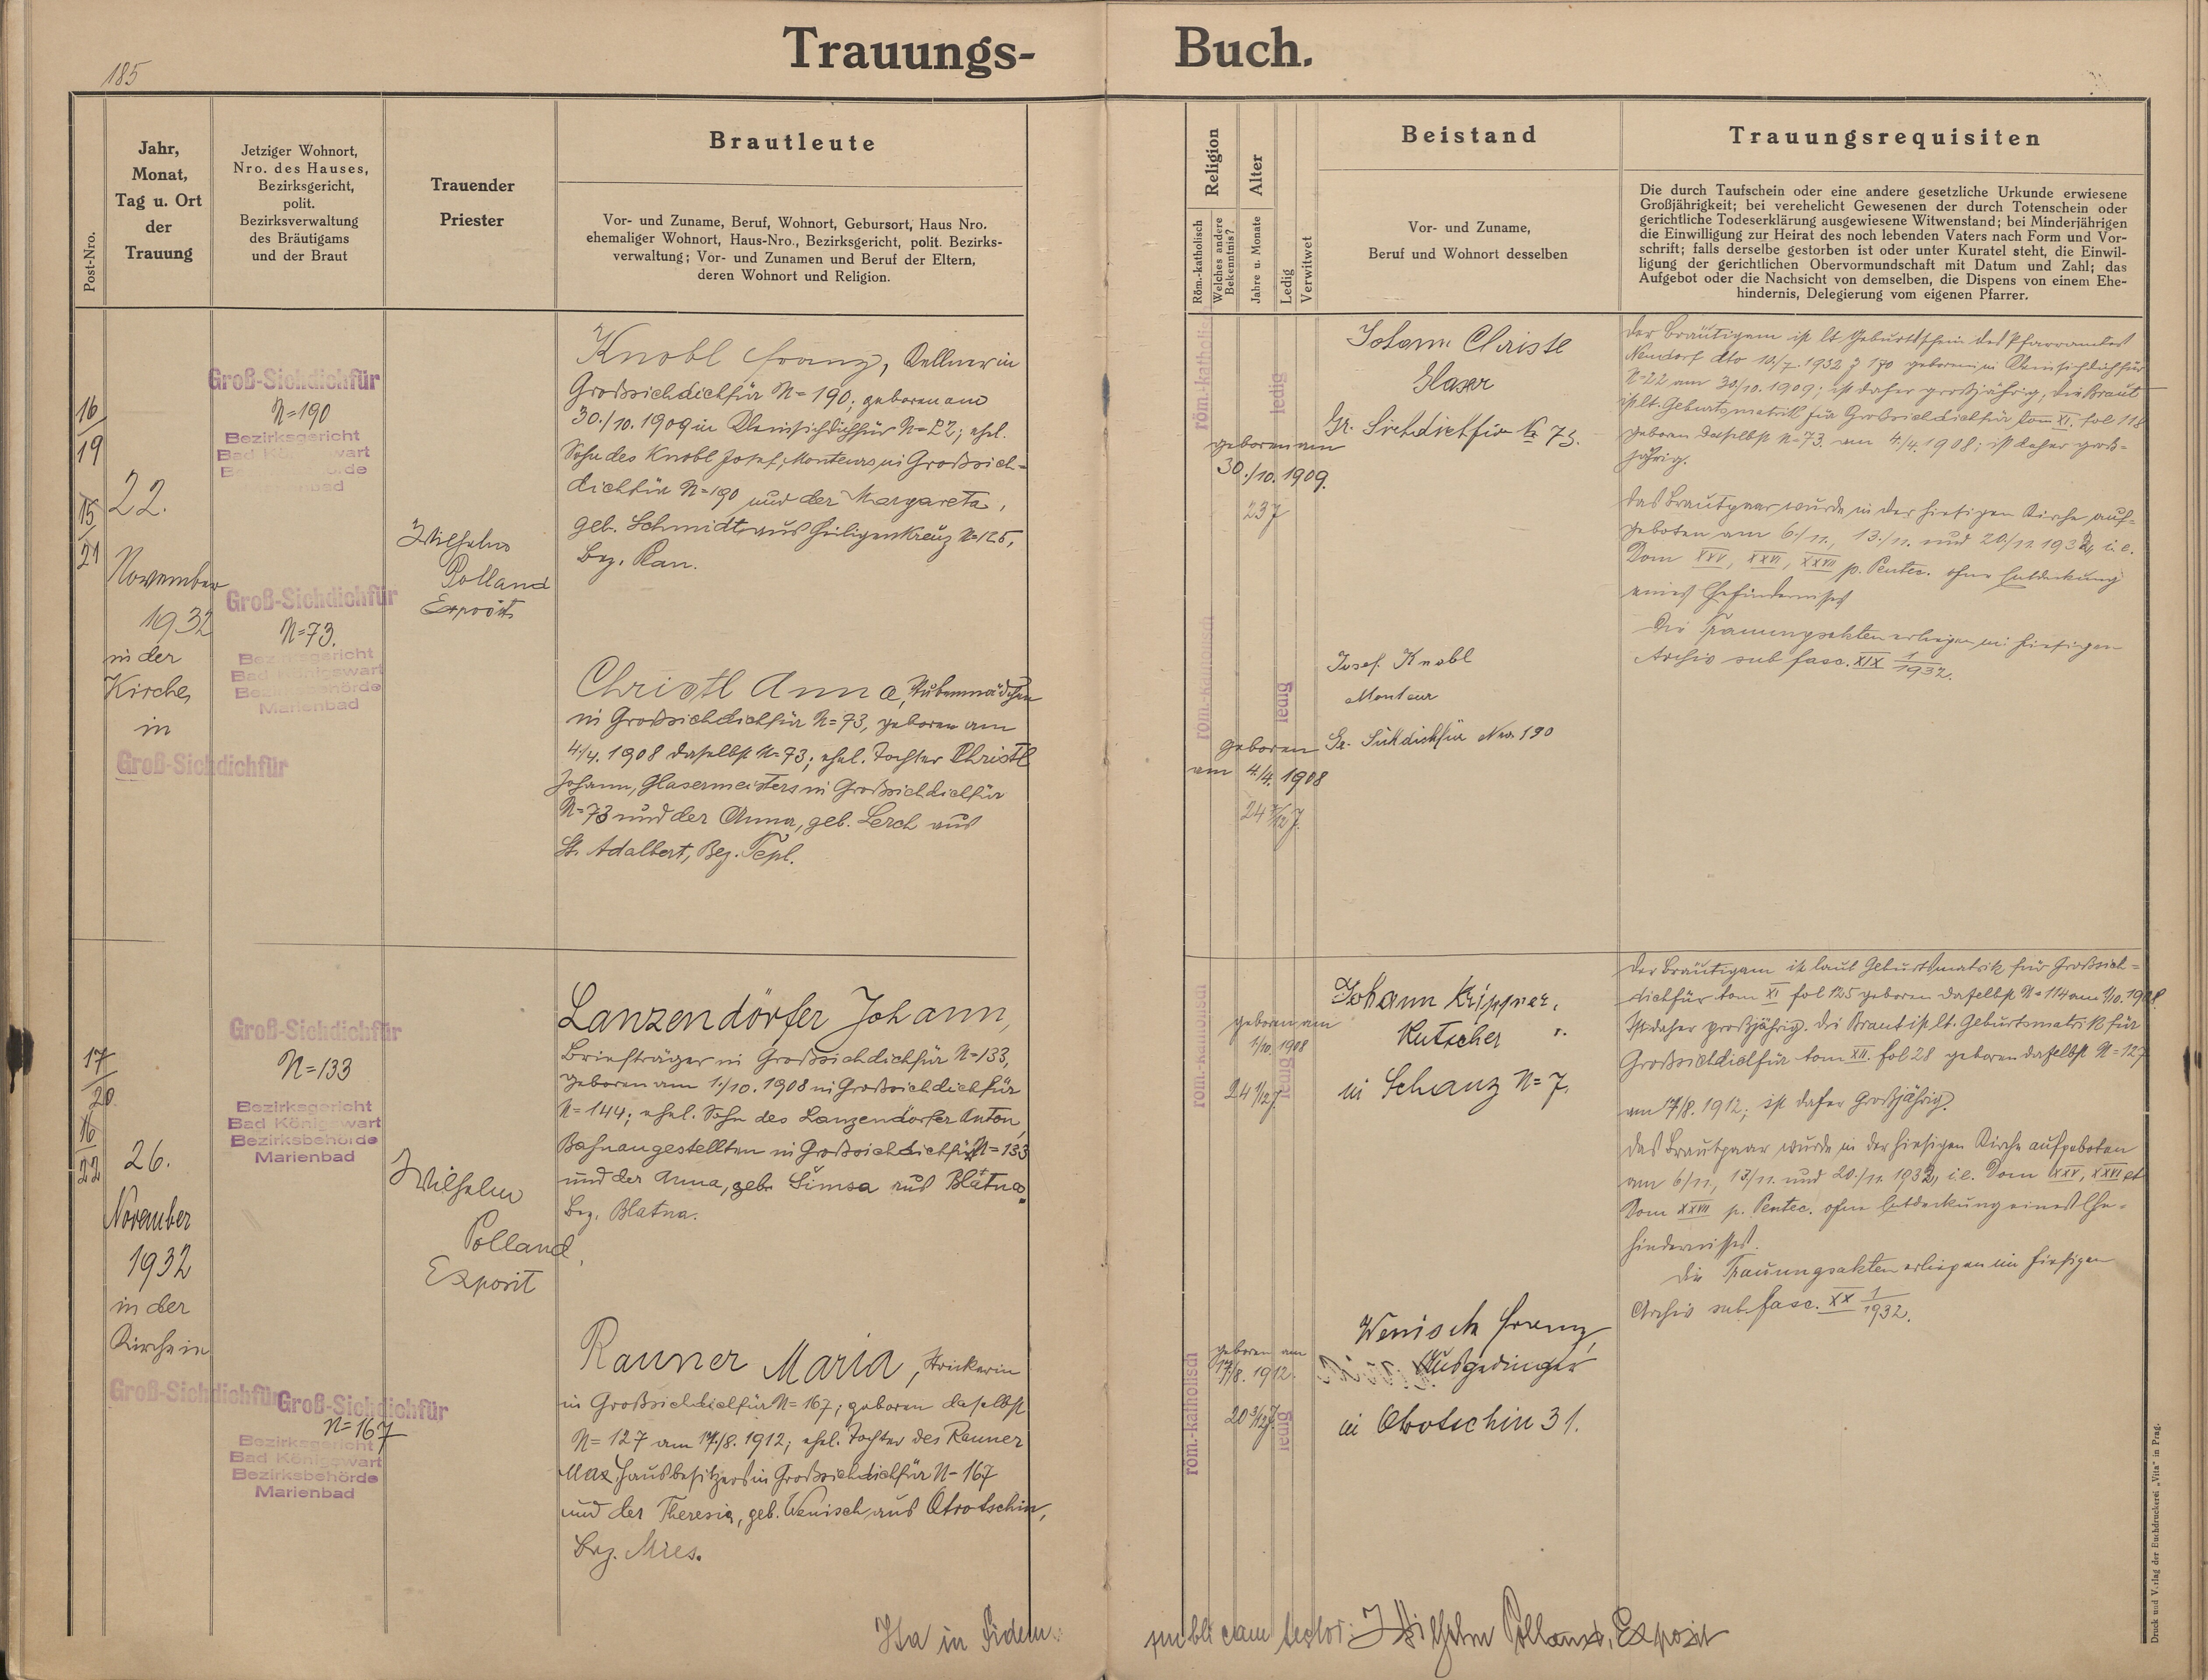 185
Trauungs-Buch.
Post-Nro.
Jahr,
Monat,
Tag u. Ort
der
Trauung
Jetziger Wohnort,
Nro. des Hauses,
Bezirksgericht,
polit.
Bezirksverwaltung
des Bräutigams
und der Braut
Trauender
Priester
Brautleute
Vor- und Zuname, Beruf, Wohnort, Gebursort, Haus Nro.
ehemaliger Wohnort, Haus-Nro., Bezirksgericht, polit. Bezirks-
verwaltung; Vor- und Zunamen und Beruf der Eltern,
deren Wohnort und Religion.
Religion
Röm.-katholisch
Welches andere
Bekenntnis?
Alter
Jahre u. Monate
Ledig
Verwitwet
Beistand
Vor- und Zuname,
Beruf und Wohnort desselben
Trauungsrequisiten
Die durch Taufschein oder eine andere gesetzliche Urkunde erwiesene
Großjährigkeit; bei verehelicht Gewesenen der durch Totenschein oder
gerichtliche Todeserklärung ausgewiesene Witwenstand; bei Minderjährigen
die Einwilligung zur Heirat des noch lebenden Vaters nach Form und Vor-
schrift; falls derselbe gestorben ist oder unter Kuratel steht, die Einwil-
ligung der gerichtlichen Obervormundschaft mit Datum und Zahl; das
Aufgebot oder die Nachsicht von demselben, die Dispens von einem Ehe-
hindernis, Delegierung vom eigenen Pfarrer.
16
19
15
21
22.
November
1932
in der
Kirche
in
Groß-Sichdichfür
Groß-Sichdichfür
N=190
Bezirksgericht
Bad Königswart
Groß-Sichdichfür
N=73.
Bezirksgericht
Bad Königswart
Bezirksbehörde
Marienbad
Wilhelm
Polland
Exposit
Knobl Franz, Kellner in
Großsichdichfür N=190; geboren am
30./10. 1909 in Kleinsichdichfür N=22; ehel.
Sohn des Knobl Josef, Monteurs in Großsich-
dichfür N=190 und der Margareta,
geb. Schmidt aus Heiligenkreuz N=125,
Bez. Plan.
Christl Anna, Stubenmädchen
in Großsichdichfür N=73, geboren am
4./4. 1908 daselbst N=73; ehel. Tochter Christl
Johann, Glasermeisters in Großsichdichfür
N=73 und der Anna, geb. Lerch aus
St. Adalbert, Bez. Tepl.
röm.-katholisch
ledig
geboren am
30./10. 1909.
23 J
röm.-katholisch
ledig
geboren
am 4./4. 1908
24 7/12 J.
Johann Christl
Glaser
Gr. Sichdichfür No 73.
Josef Knobl
Monteur
Gr. Sichdichfür Nro. 190
Der Bräutigam ist lt Geburtsschein des Pfarramtes
Neudorf dto 10/7. 1932 Z 170 geboren in Kleinsichdichfür
N=22 am 30/10. 1909; ist daher großjährig, die Braut
ist lt. Geburtsmatrik für Großsichdichfür tom XI. fol 118
geboren daselbst N=73 am 4/4. 1908; ist daher groß-
jährig.
Das Brautpaar wurde in der hiesigen Kirche auf-
geboten am 6./11., 13./11. und 20./11. 1932, i.e.
Dom XXV, XXVI, XXVII p. Pentec. ohne Entdeckung
eines Ehehindernisses
Die Trauungsakten erliegen im hiesigen
Archiv sub fasc. XIX 1/1932.
17
20
16
22
26.
November
1932
in der
Kirche in
Groß-Sichdichfür
Groß-Sichdichfür
N=133
Bezirksgericht
Bad Königswart
Bezirksbehörde
Marienbad
Groß-Sichdichfür
N=167
Bezirksgericht
Bad Königswart
Bezirksbehörde
Marienbad
Wilhelm
Polland,
Exposit
Lanzendörfer Johann,
Briefträger in Großsichdichfür N=133,
geboren am 1./10. 1908 in Großsichdichfür
N=144; ehel. Sohn des Lanzendörfer Anton,
Bahnangestellten in Großsichdichfür N=133
und der Anna, geb. Simsa aus Blatna,
Bez. Blatna.
Rauner Maria, Strickerin
in Großsichdichfür N=167; geboren daselbst
N=127 am 17./8. 1912; ehel. Tochter des Rauner
Max, Hausbesitzers in Großsichdichfür N=167
und der Theresia, geb. Wenisch aus Otrotschin,
Bez. Mies.
röm.-katholisch
ledig
geboren am
1/10. 1908
24 1/12 J.
röm.-katholisch
ledig
geboren am
17/8. 1912.
20 3/12 J.
Johann Krippner,
Kutscher
in Schanz N=7.
Wenisch Franz,
Ausgedinger
in Otrotschin 31.
Der Bräutigam ist laut Geburtsmatrik für Großsich-
dichfür tom XI fol 125 geboren daselbst N=114 am 1/10. 1908.
Ist daher großjährig. Die Braut ist lt. Geburtsmatrik für
Großsichdichfür tom XII. fol 28 geboren daselbst N=127
am 17/8. 1912; ist daher großjährig.
Das Brautpaar wurde in der hiesigen Kirche aufgeboten
am 6/11., 13/11. und 20./11. 1932, i.e. Dom XXV, XXVI et
Dom XXVII p. Pentec. ohne Entdeckung eines Ehe-
hindernisses.
Die Trauungsakten erliegen im hiesigen
Archiv sub fasc. XX 1/1932.
Ita in fidem publicam testor: Wilhelm Polland, Exposit
Druck und Verlag der Buchdruckerei „Vita" in Prag.